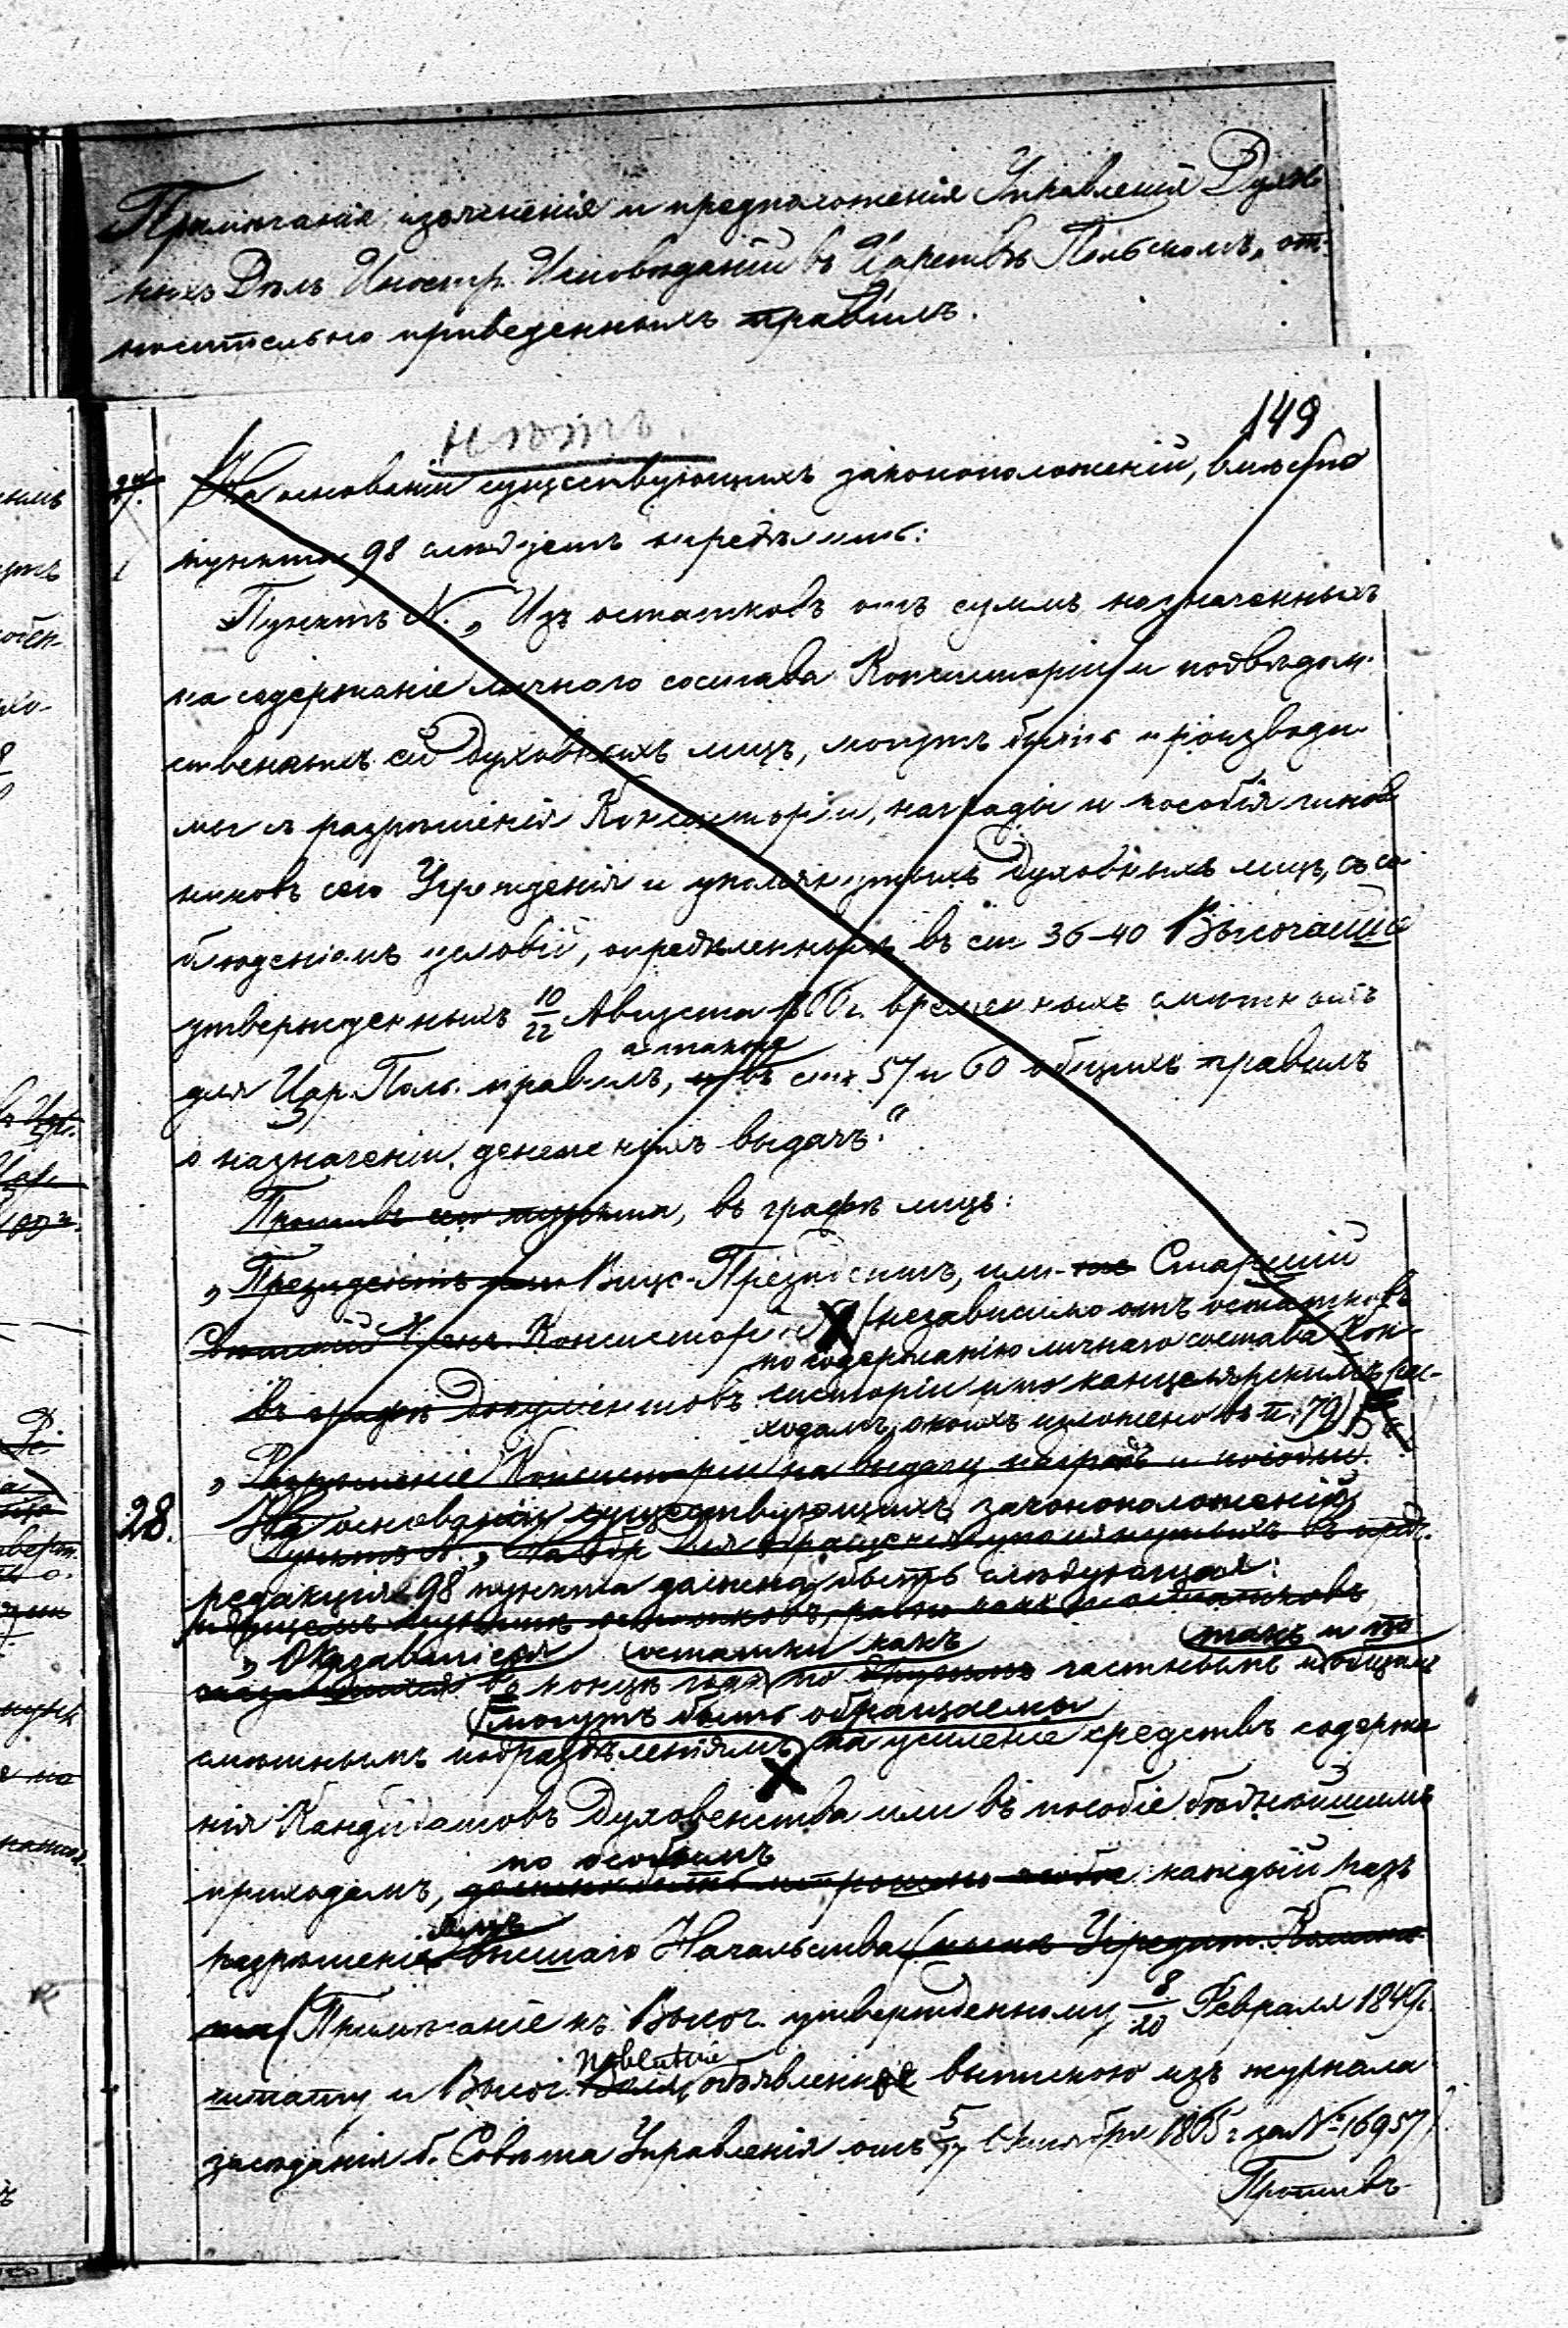 Примѣчанія, изъясненія и предположенія Управленія Духов
ныхъ Дѣлъ Иностр. Исповѣданій въ Царствѣ Польскомъ, от-
носительно приведенныхъ правилъ.
149
нѣтъ
На основаніи существующихъ законоположеній, вмѣсто
пункта 98 слѣдуетъ опредѣлить:
Пунктъ N. „Изъ остатковъ отъ суммъ назначенныхъ
на содержаніе личнаго состава Консисторіи и подвѣдом-
ственныхъ ей духовныхъ лицъ, могутъ быть производи
мы съ разрѣшенія Консисторіи, награды и пособія чинов
никовъ сего Учрежденія и упомянутыхъ духовныхъ лицъ, съ со
блюденіемъ условій, опредѣленныхъ въ ст 36-40 Высочайше
утвержденныхъ 10/22 Августа 1866 г. временныхъ смѣтныхъ
а также
для Цар. Поль. правилъ, и въ ст. 57 и 60 общихъ правилъ
о назначеніи денежныхъ выдачъ."
Противъ сего пункта, въ графѣ лицъ:
„Президентъ или Вице-Президентъ, или Старшій
Членъ Консисторіи (независимо отъ остатковъ
по содержанію личнаго состава Кон-
въ графѣ документовъ систоріи и по канцелярскимъ рас-
ходамъ, о коихъ изложено въ п. 79)
„Разрѣшеніе Консисторіи на выдачу наградъ и пособій.
28. На основаніи существующихъ законоположеній
Пунктъ N. „ Для обращенія упомянутыхъ въ пред.
редакція 98 пункта должна быть слѣдующая:
идущемъ пунктѣ остатковъ, равно какъ остатковъ
„Оказавшіеся остатки какъ такъ и по
въ концѣ года по частнымъ и общимъ
могутъ быть обращаемы
смѣтнымъ подраздѣленіямъ, на усиленіе средствъ содержа
нія Кандидатовъ Духовенства или въ пособіе бѣднѣйшимъ
по особымъ
приходамъ, каждый разъ
разрѣшеніямъ высшаго Начальства (нынѣ Учредит. Комите
та) (Примѣчаніе къ Высоч. утвержденному 8/20 Февраля 1849 г.
повелѣніе
штату и Высоч. воля, объявленное выпискою изъ журнала
засѣданія б. Совѣта Управленія отъ 5/17 Октября 1865 г за № 16957)
Противъ